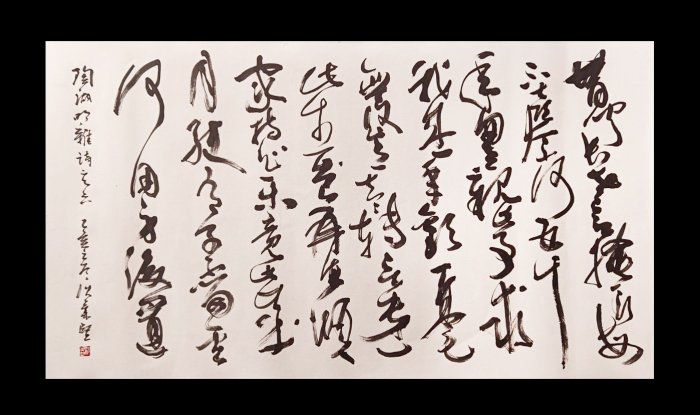 昔聞長老言掩耳每
不喜奈何五十
年忽已親此事求
我盛年歡一毫
無復意去去轉欲遠
此生豈再值傾
家持作樂竟此歲
月駛有子不留金
何用身後置
陶淵明雜詩之六 己亥